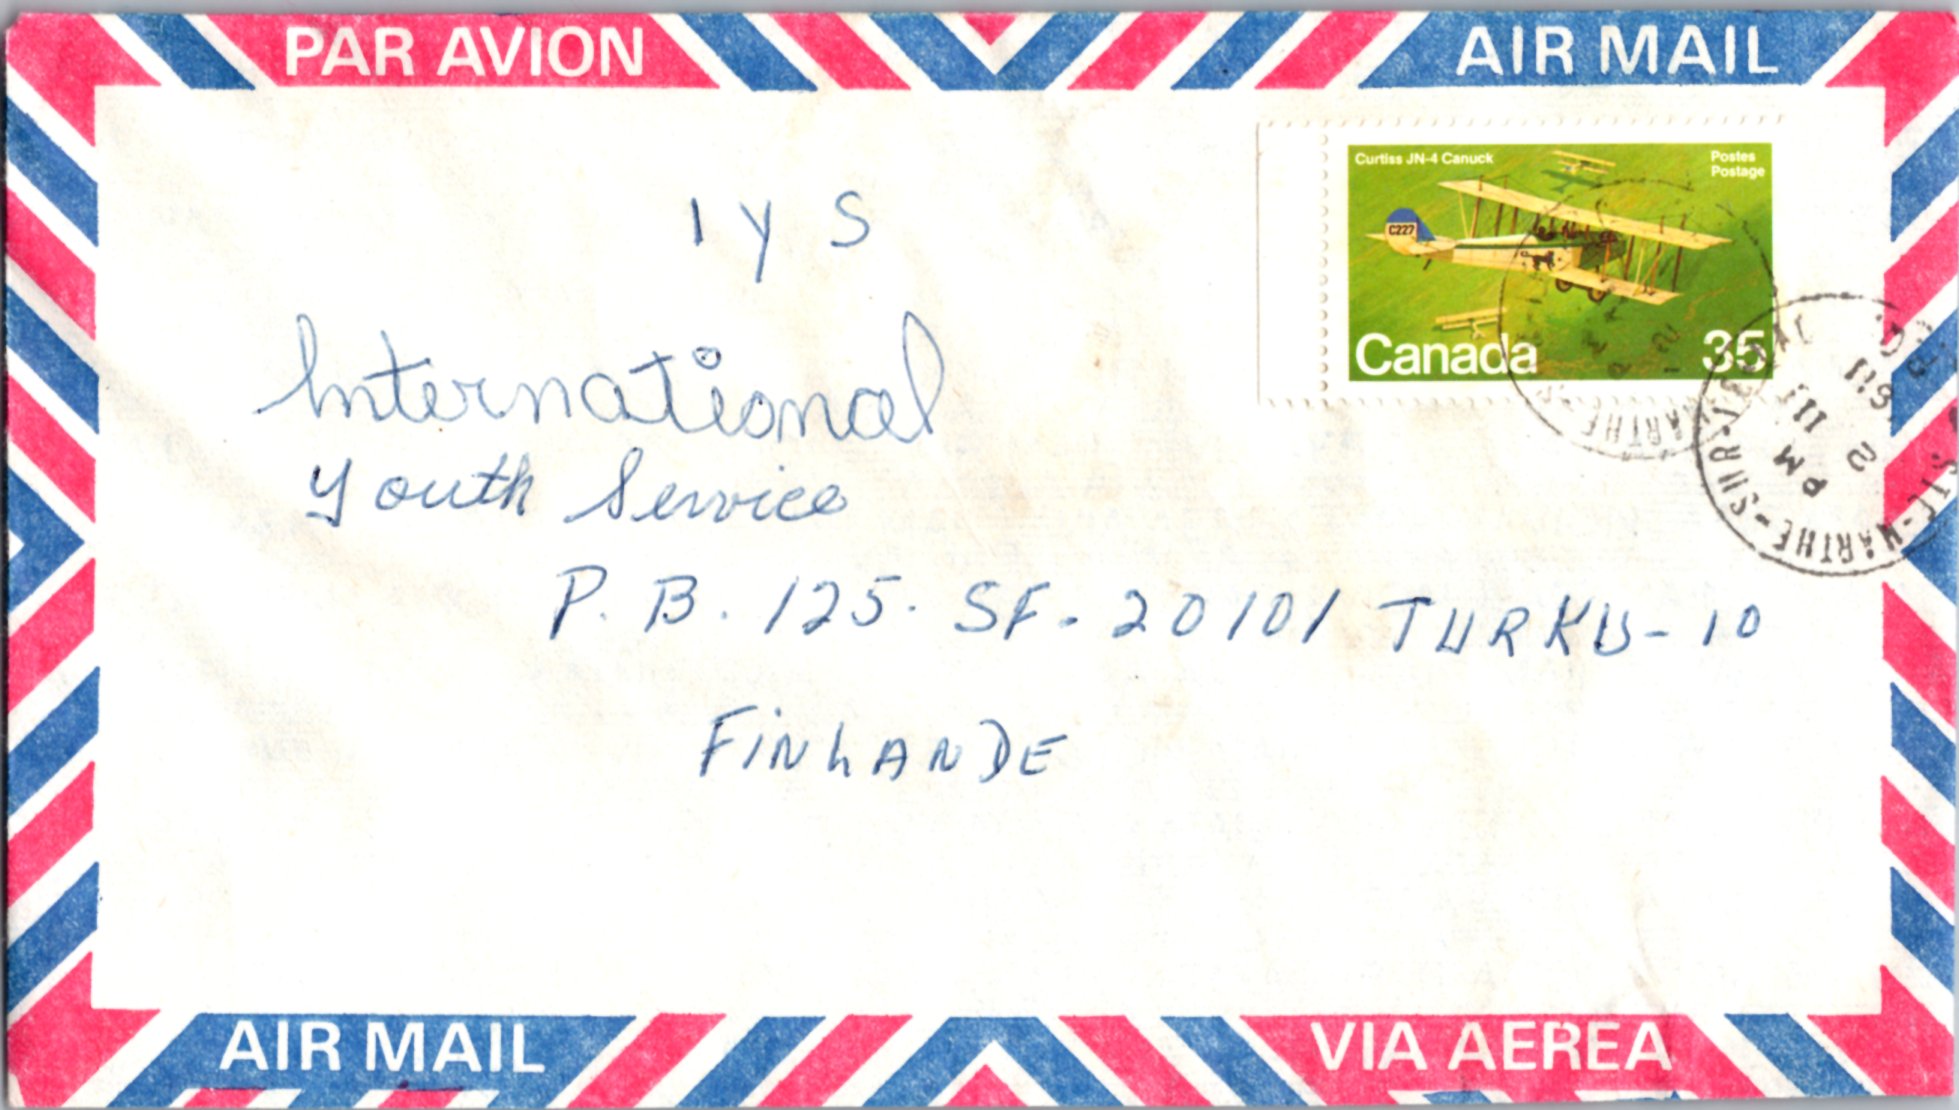 PAR AVION
AIR MAIL
Curtiss JN-4 Canuck
Postes
Postage
C227
Canada
35
I Y S
International
Youth Service
P. B. 125. SF. 20101 TURKU-10
FINLANDE
PM
2
III
STE-MARTHE-SUR-
AIR MAIL
VIA AEREA